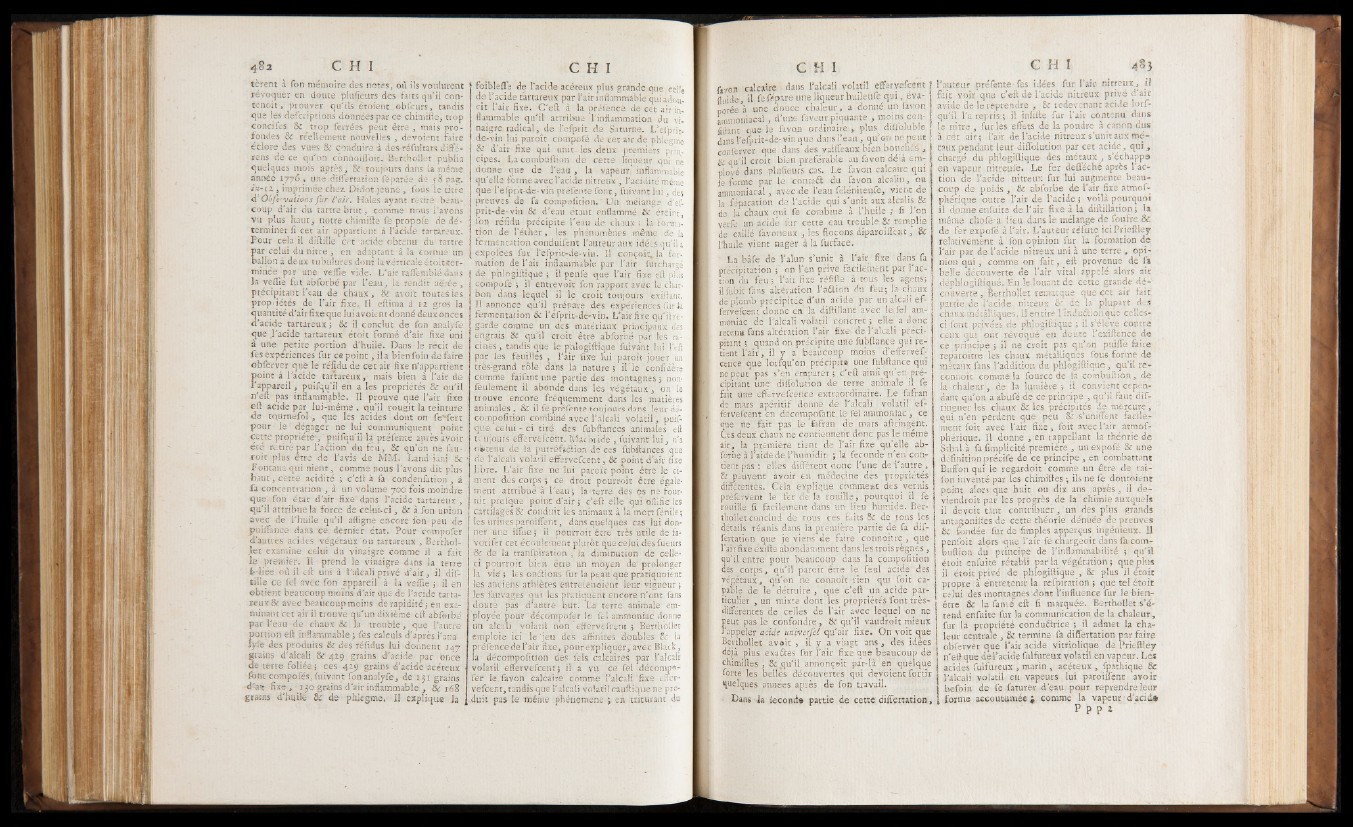 482 C H I
tèrent à son mémoire des notes, où ils voulurent
révoquer en doute plusieurs des faits qu'il con-
tenoit, prouver qu'ils étoient obscurs, tandis
que les descriptions données par ce chimiste, trop
concises & trop serrées peut être, mais pro-
fondes & réellement nouvelles, devoient faire
éclore des vues & conduire à des résultats diffé-
rens de ce qu'on connoissoit. Berthollet publia
quelques mois après, & toujours dans la même
année 1776, une dissertation séparée de 78 pag.
in-12, imprimée chez Didot jeune, sous le titre
d'Observations sur l'air. Hales ayant retiré beau-
coup d'air du tartre brut, comme nous l'avons
vu plus haut, notre chimiste se proposa de dé-
terminer si cet air appartient à l'acide tartareux.
Pour cela il distille cet acide obtenu du tartre
par celui du nitre, en adaptant à la cornue un
ballon à deux tubulures dont la verticale étoit ter-
minée par une vessie vide. L'air rassemblé dans
la vessie fut absorbé par l'eau, la rendit aérée,
précipitant l'eau de chaux, & avoit toutes les
propriétés de l'air fixe. Il estima à 12 gros la
quantité d'air fixe que lui avoient donné deux onces
d'acide tartareux; & il conclut de son analyse
que l'acide tartareux étoit formé d'air fixe uni
à une petite portion d'huile. Dans le récit de
ses expériences sur ce point, il a bien soin de faire
observer que le résidu de cet air fixe n'appartient
point à l'acide tartareux, mais bien à l'air de
l'appareil, puisqu'il en a les propriétés & qu'il
n'est pas inflammable. Il prouve que l'air fixe
est acide par lui-même, qu'il rougit la teinture
de tournesol, que les acides dont on se sert
pour le dégager ne lui communiquent point
cette propriété, puisqu'il la présente après avoir
été retiré par l'action du feu, & qu'on ne sau-
roit plus être de l'avis de MM. Landriani &
Fontana qui nient, comme nous l'avons dit plus
haut, cette acidité; c'est à sa condensation, à
sa concentration, à un volume 700 fois moindre
que son état d'air fixe dans l'acide tartareux,
qu'il attribue la force de celui-ci, & à son union
avec de l'huile qu'il assigne encore son peu de
puissance dans ce dernier état. Pour composer
d'autres acides végétaux ou tartareux, Berthol-
let examine celui du vinaigre comme il a fait
le premier. Il prend le vinaigre dans la terre
foliée où il est uni à l'alcali privé d'air, il dis-
tille ce sel avec son appareil à la vessie; il en
obtient beaucoup moins d'air que de l'acide tarta-
reux & avec beaucoup moins de rapidité; en exa-
minant cet air il trouve qu'un dixième est absorbé
par l'eau de chaux & la trouble, que l'autre
portion est inflammable; ses calculs d'après l'ana-
lyse des produits & des résidus lui donnent 147
grains d'alcali & 429 grains d'acide par once
de terre foliée; ces 429 grains d'acide acéteux
sont composés, suivant son analyse, de 131 grains
d'air fixe, 130 grains d'air inflammable, & 168
grains d'huile & de phlegme. Il explique la
C H I
foiblesse de l'acide acéteux plus grande que celle
de l'acide tartareux par l'air inflammable qui adou-
cit l'air fixe. C'est à la présence de cet air in-
flammable qu'il attribue l'inflammation du vi-
naigre radical, de l'esprit de Saturne. L'esprit-
de-vin lui paroît composé de cet air de phlegme
& d'air fixe qui unit les deux premiers prin-
cipes. La combustion de cette liqueur qui ne
donne que de l'eau, la vapeur inflammable
qu'elle forme avec l'acide nitreux, l'acidité même
que l'esprit-de-vin présente sont, suivant lui, des
preuves de sa composition. Un mélange d'es-
prit-de-vin & d'eau étant enflammé & éteint,
son résidu précipite l'eau de chaux: la forma-
tion de l'éther, les phénomènes même de la
fermentation conduisent l'auteur aux idées qu'il a
exposées sur l'esprit-de-vin. Il conçoit la for-
mation de l'air inflammable par l'air surchargé
de phlogistique; il pense que l'air fixe est plus
composé; il entrevoit son rapport avec le char-
bon dans lequel il le croit toujours existant.
Il annonce qu'il prépare des expériences sur la
fermentation & l'esprit-de-vin. L'air fixe qu'il re-
garde comme un des matériaux principaux des
engrais & qu'il croit être absorbé par les ra-
cines, tandis que le phlogistique suivant lui l'est
par les feuilles, l'air fixe lui paroît jouer un
très-grand rôle dans la nature; il le considère
comme faisant une partie des montagnes; non-
seulement il abonde dans les végétaux, on le
trouve encore fréquemment dans les matières
animales, & il se présente toujours dans leur dé-
composition combiné avec l'alcali volatil, puis-
que celui-ci tiré des substances animales est
toujours effervescent. Macbride, suivant lui, n'a
obtenu de la putréfaction de ces substances que
de l'alcali volatil effervescent, & point d'air fixe
libre. L'air fixe ne lui paroît point être le ci-
ment des corps; ce droit pourroit être égale-
ment attribué à l'eau; la terre des os ne four-
nit presque point d'air; c'est elle qui ossifie les
cartilages & conduit les animaux à la mort sénile;
les urines paroissent, dans quelques cas lui don-
ner une issue; il pourroit être très utile de fa-
voriser cet écoulement plutôt que celui des sueurs
& de la transpiration, la diminution de celle-
ci pourroit bien être un moyen de prolonger
la vie; les onctions sur la peau que pratiquoient
les anciens athlètes entretenoient leur vigueur;
les sauvages qui les pratiquent encore n'ont sans
doute pas d'autre but. La terre animale em-
ployée pour décomposer le sel ammoniac donne
un alcali volatil non effervescent; Berthollet
emploie ici le jeu des affinités doubles & la
présence de l'air fixe, pour expliquer, avec Black,
la décomposition des sels calcaires par l'alcali
volatil effervescent; il a vu ce sel décompo-
ser le savon calcaire comme l'alcali fixe effer-
vescent, tandis que l'alcali volatil caustique ne pro-
duit pas le même phénomène; en triturant du
C H I
savon calcaire dans l'alcali volatil effervescent
fluide, il se sépare une liqueur huileuse qui, éva-
porée à une douce chaleur, a donné un savon
ammoniacal, d'une saveur piquante, moins con-
sistant que le savon ordinaire, plus dissoluble
dans l'esprit-de-vin que dans l'eau, qu'on ne peut
conserver que dans des vaisseaux bien bouchés,
& qu'il croit bien préférable au savon déjà em-
ployé dans plusieurs cas. Le savon calcaire qui
se forme par le contact du savon alcalin, ou
ammoniacal, avec de l'eau séléniteuse, vient de
la séparation de l'acide qui s'unit aux alcalis &
de la chaux qui se combine à l'huile; si l'on
verse un acide sur cette eau trouble & remplie
de caillé savoneux, les flocons disparoissent, &
l'huile vient nager à la surface.
La base de l'alun s'unit à l'air fixe dans sa
précipitation; on l'en prive facilement par l'ac-
tion du feu; l'air fixe résiste à tous les agens;
il subit sans altération l'action du feu; la chaux
de plomb précipitée d'un acide par un alcali ef-
fervescent donne en la distillant avec le sel am-
moniac de l'alcali volatil concret; elle a donc
retenu sans altération l'air fixe de l'alcali préci-
pitant: quand on précipite une substance qui re-
tient l'air, il y a beaucoup moins d'efferves-
cence que lorsqu'on précipite une substance qui
ne peut pas s'en emparer; c'est ainsi qu'en pré-
cipitant une dissolution de terre animale il se
fait une effervescence extraordinaire. Le safran
de mars apéritif donne de l'alcali volatil ef-
fervescent en décomposant le sel ammoniac, ce
que ne fait pas le safran de mars astringent.
Ces deux chaux ne contiennent donc pas le même
air, la première tient de l'air fixe qu'elle ab-
sorbe à l'aide de l'humidité; la seconde n'en con-
tient pas: elles diffèrent donc l'une de l'autre,
& peuvent avoir en médecine des propriétés
différentes. Cela explique comment des vernis
préservent le fer de la rouille, pourquoi il se
rouille si facilement dans un lieu humide. Ber-
thollet conclud de tous ces faits & de tous les
détails réunis dans la première partie de sa dis-
sertation que je viens de faire connoître, que
l'air fixe existe abondamment dans les trois règnes,
qu'il entre pour beaucoup dans la composition
des corps, qu'il paroît être le seul acide des
végétaux, qu'on ne connoît rien qui soit ca-
pable de le détruire, que c'est un acide par-
ticulier, un mixte dont les propriétés sont très-
différentes de celles de l'air avec lequel on ne
peut pas le confondre, & qu'il vaudroit mieux
l'appeler acide universel qu'air fixe. On voit que
Berthollet avoit, il y a vingt ans, des idées
déjà plus exactes sur l'air fixe que beaucoup de
chimistes, & qu'il annonçoit par-là en quelque
sorte les belles découvertes qui devoient sortir
quelques années après de son travail.
Dans la seconde partie de cette dissertation,
C H I 483
l'auteur présente ses idées sur l'air nitreux, il
fait voir que c'est de l'acide nitreux privé d'air
avide de le reprendre, & redevenant acide lors-
qu'il l'a repris; il insiste sur l'air contenu dans
le nitre, sur les effets de la poudre à canon dus
à cet air; l'air de l'acide nitreux s'unit aux mé-
taux pendant leur dissolution par cet acide, qui,
chargé du phlogistique des métaux, s'échappe
en vapeur nitreuse. Le fer desséché après l'ac-
tion de l'acide nitreux sur lui augmente beau-
coup de poids, & absorbe de l'air fixe atmos-
phérique outre l'air de l'acide; voilà pourquoi
il donne ensuite de l'air fixe à la distillation; la
même chose a lieu dans le mélange de soufre &
de fer exposé à l'air. L'auteur réfute ici Priestley
relativement à son opinion sur la formation de
l'air par de l'acide nitreux uni à une terre, opi-
nion qui, comme on sait, est provenue de sa
belle découverte de l'air vital appelé alors air
déphlogistiqué. En le louant de cette grande dé-
couverte, Berthollet remarque que cet air fait
partie de l'acide nitreux & de la plupart des
chaux métalliques. Il entire l'induction que celles-
ci sont privées de phlogistique; il s'élève contre
ceux qui ont révoqué en doute l'existence de
ce principe; il ne croit pas qu'on puisse faire
reparoître les chaux métalliques sous forme de
métaux sans l'addition du phlogistique, qu'il re-
connoît comme la source de la combustion, de
la chaleur, de la lumière; il convient cepen-
dant qu'on a abusé de ce principe, qu'il faut dis-
tinguer les chaux & les précipités de mercure,
qui n'en perdent que peu & s'unissent facile-
ment soit avec l'air fixe, soit avec l'air atmos-
phérique. Il donne, en rappellant la théorie de
Sthal à sa simplicité première, un exposé & une
définition précise de ce principe, en combattant
Buffon qui le regardoit comme un être de rai-
son inventé par les chimistes; ils ne se doutoient
point alors que huit ou dix ans après, il de-
viendroit par les progrès de la chimie auxquels
il devoit tant contribuer, un des plus grands
antagonistes de cette théorie dénuée de preuves
& fondée sur de simples apperçus ingénieux. Il
pensoit alors que l'air se chargeoit dans la com-
bustion du principe de l'inflammabilité; qu'il
étoit ensuite rétabli par la végétation; que plus
il étoit privé de phlogistique, & plus il étoit
propre à entretenir la respiration; que tel étoit
celui des montagnes dont l'influence sur le bien-
être & la santé est si marquée. Berthollet s'é-
tend ensuite sur la communication de la chaleur,
sur la propriété conductrice; il admet la cha-
leur centrale, & termine sa dissertation par faire
observer que l'air acide vitriolique de Priestley
n'est que de l'acide sulfureux volatil en vapeur. Les
acides sulfureux, marin, acéteux, spathique &
l'alcali volatil en vapeurs lui paroissent avoir
besoin de se saturer d'eau pour reprendre leur
forme accoutumée; comme la vapeur d'acide
P p p 2